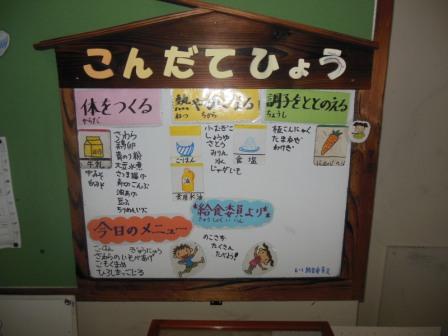 こんだてひょう
体をつくる
からだ
熱や
ねつ
ちから
調子をととのえる
ちょうし
牛乳
さわら
鶏卵
青のり粉
大豆水煮
さつま揚げ
寿切こんぶ
油あげ
豆ふ
ちりめんいりこ
ごはん
食用米油
小むぎこ
しょうゆ
さとう
みりん
水
食塩
じゃがいも
板こんにゃく
たまねぎ
わけぎ
にんじん
今日のメニュー
ごはん　ぎゅうにゅう
さわらのいそべあげ
ごもくまめ
ひろしまっこじる
給食委員より
きゅうしょくいいん
のこさず
たくさん
たべよう!